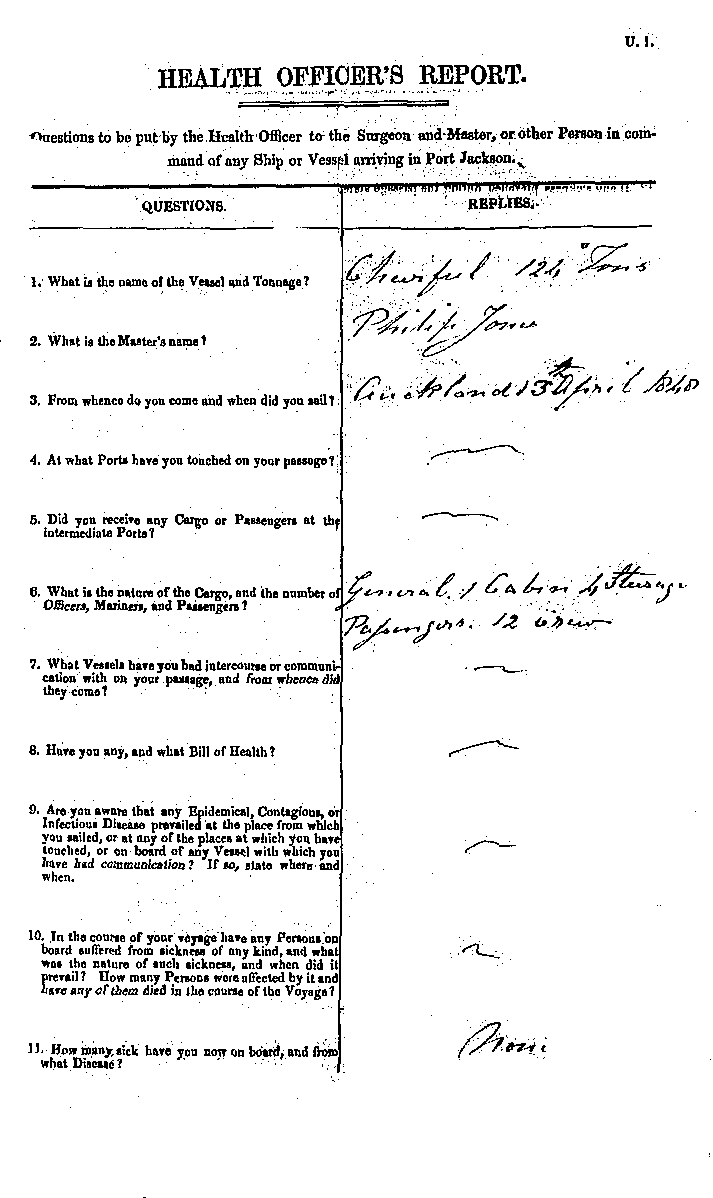 U. 1.
HEALTH OFFICER'S REPORT.
Questions to be put by the Health Officer to the Surgeon and Master, or other Person in com-
mand of any Ship or Vessel arriving in Port Jackson.
QUESTIONS.
REPLIES.
1. What is the name of the Vessel and Tonnage?
Cheerful 124 Tons
2. What is the Master's name?
Philip Jones
3. From whence do you come and when did you sail?
Auckland 13th April 1848
4. At what Ports have you touched on your passage?
5. Did you receive any Cargo or Passengers at the
intermediate Ports?
6. What is the nature of the Cargo, and the number of
Officers, Mariners, and Passengers?
General. 1 Cabin 4 Steerage
Passengers. 12 Crew
7. What Vessels have you had intercourse or communi-
cation with on your passage, and from whence did
they come?
8. Have you any, and what Bill of Health?
9. Are you aware that any Epidemical, Contagious, or
Infectious Disease prevailed at the place from which
you sailed, or at any of the places at which you have
touched, or on board of any Vessel with which you
have had communication? If so, state where and
when.
10. In the course of your voyage have any Persons on
board suffered from sickness of any kind, and what
was the nature of such sickness, and when did it
prevail? How many Persons were affected by it and
have any of them died in the course of the Voyage?
11. How many sick have you now on board, and from
what Disease?
None